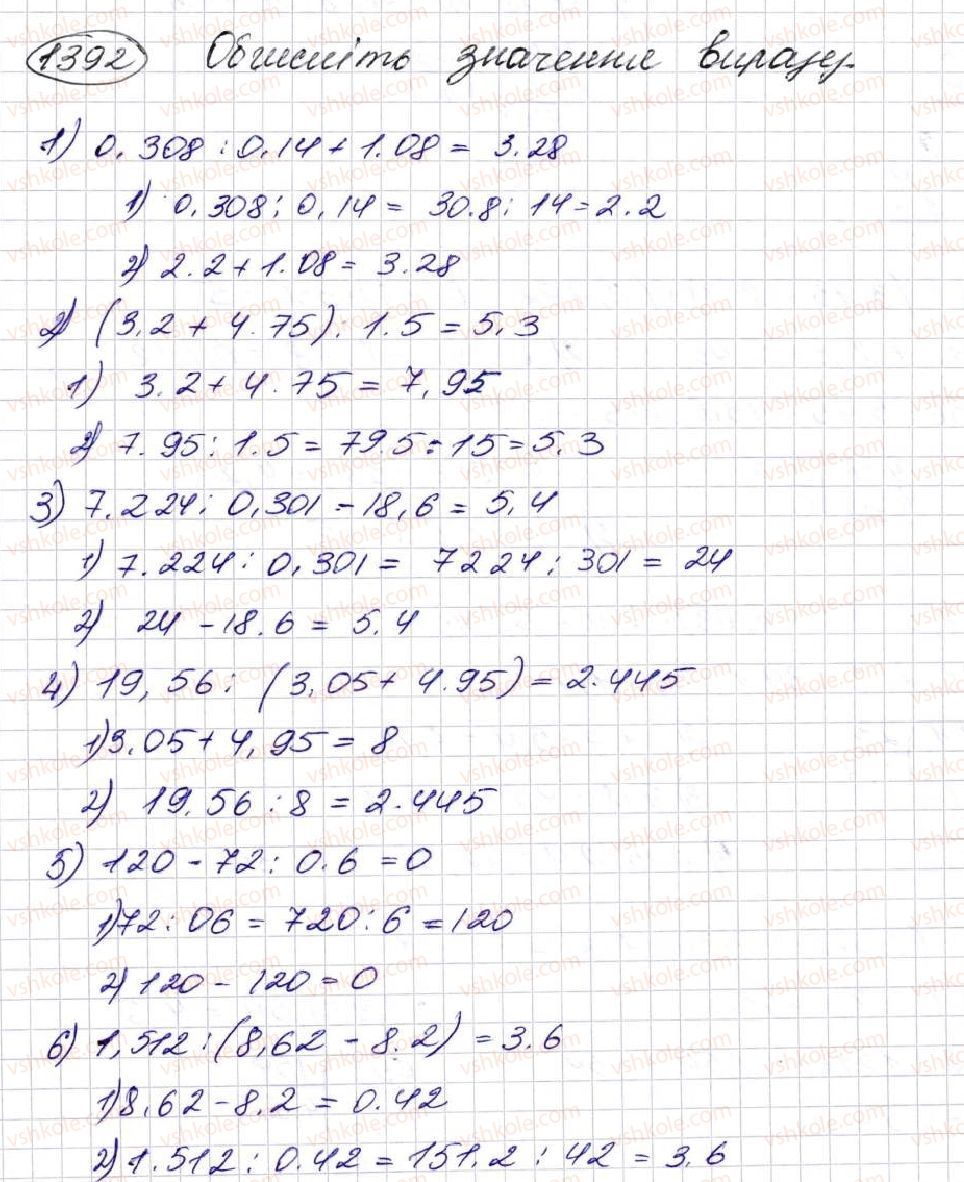 1392 Обчисліть значення виразу.
1) 0.308 : 0.14 + 1.08 = 3.28
1) 0.308 : 0,14 = 30.8 : 14 = 2.2
2) 2.2 + 1.08 = 3.28
2) (3.2 + 4.75) : 1.5 = 5,3
1) 3.2 + 4.75 = 7,95
2) 7.95 : 1.5 = 79.5 : 15 = 5.3
3) 7.224 : 0,301 - 18,6 = 5,4
1) 7.224 : 0,301 = 7224 : 301 = 24
2) 24 - 18.6 = 5.4
4) 19,56 : (3,05 + 4.95) = 2.445
1) 3.05 + 4,95 = 8
2) 19.56 : 8 = 2.445
5) 120 - 72 : 0.6 = 0
1) 72 : 06 = 720 : 6 = 120
2) 120 - 120 = 0
6) 1,512 : (8,62 - 8.2) = 3.6
1) 8.62 - 8.2 = 0.42
2) 1.512 : 0.42 = 151.2 : 42 = 3.6
vshkole.com